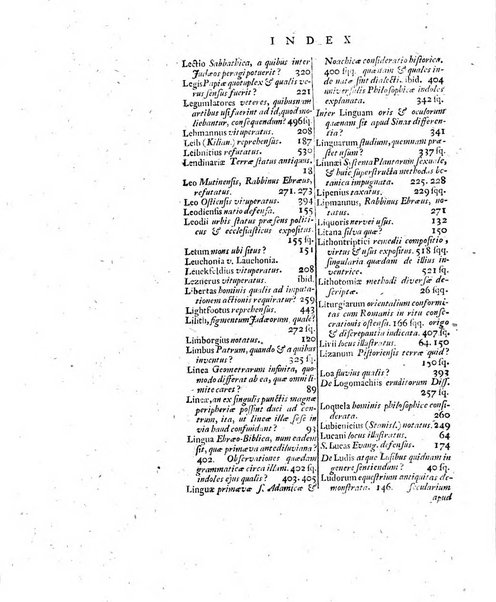 INDEX
Lectio Sabbathica, a quibus inter
Judæos peragi potuerit? 320
Legis Papiæ quotuplex & qualis ve-
rus sensus fuerit? 221
Legumlatores veteres, quibusnam
artibus usi fuerint ad id, quod moli-
liebantur, consequendum? 496 sq.
Lehmannus vituperatus. 208
Leib (Kilian.) reprehensus. 187
Leibnitius refutatus. 530
Lendinariæ Terræ status antiquus.
18
Leo Mutinensis, Rabbinus Ebræus,
refutatus. 271. 273
Leo Ostiensis vituperatus. 394
Leodiensis natio defensa. 155
Leodii urbis status præsens politi-
cus & ecclesiasticus expositus.
155 sq.
Letum mons ubi situs? 151
Leuchonia v. Lauchonia.
Leuckfeldius vituperatus. 208
Leznerus vituperatus. ibid.
Libertas hominis qualis ad imputa-
tionem actionis requiratur? 259
Lightfootus reprehensus. 443
Lilith, figmentum Judæorum, quale?
272 sq.
Limborgius notatus. 120
Limbus Patrum, quando & a quibus
inventus? 35 sq.
Linea Geometrarum infinita, quo-
modo differat ab ea, quæ omni li-
mite caret? 89
Lineæ, an ex singulis punctis magnæ
peripheriæ possint duci ad cen-
trum, ita, ut lineæ illæ sese in
via haud confundant? 93
Lingua Ebræo-Biblica, num eadem
sit, quæ primæva antediluviana?
402. Observationes quædam
grammaticæ circa illam. 402 sq.
indoles ejus qualis? 403. 405
Linguæ primævæ s. Adamicæ &
Noachicæ consideratio historica.
400 sqq. quædam & quales in-
de natæ sint dialecti. ibid. 404
universalis Philosophicæ indoles
explanata. 342 sq.
Inter Linguam oris & oculorum
quænam sit apud Sinas differen-
tia? 341
Linguarum studium, quemnam præ-
stet usum? 337 sq.
Linnæi Systema Plantarum sexuale,
& huic superstructa methodus bo-
tanica impugnata. 225. 228
Lipenius taxatus. 229
Lipmannus, Rabbinus Ebræus, no-
tatus. 271
Liquoris nervei usus. 132
Litana silva quæ? 150
Lithontriptici remedii compositio,
virtus & usus expositus. 518 sq.
singularia quædam de illius in-
ventrice. 521 sq.
Lithotomiæ methodi diversæ de-
scriptæ. 240 sqq.
Liturgiarum orientalium conformi-
tas cum Romanis in ritu conse-
crationis ostensa. 166 sq. origo
& discrepantia indicata. 407 sq.
Livii locus illustratus. 64. 150
Lizanum Pistoriensis terra quæ?
150 sq.
Loa fluvius qualis? 393
De Logomachiis eruditorum Diss.
257 sq.
Loquela hominis philosophice consi-
derata 260
Lubienicius (Stanisl.) notatus. 249
Lucani locus illustratus. 64
S. Lucas Evang. defensus. 174
De Ludis atque Lusibus quidnam in
genere sentiendum? 40 sq.
Ludorum equestrium antiquitas de-
monstrata. 146. sæcularium
apud